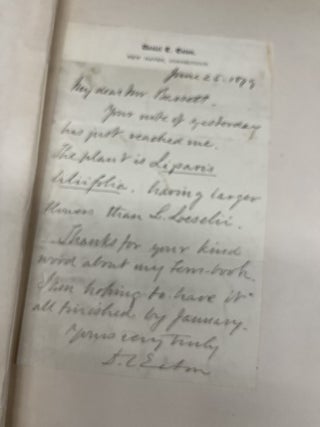 Daniel C. Eaton,
NEW HAVEN, CONNECTICUT.
June 25. 1879
My dear Mr Bassett.
Your note of yesterday
has just reached me.
The plant is Liparis
liliifolia. having larger
flowers than L. Loeselii.
Thanks for your kind
word about my fern-book.
I am hoping to have it
all finished by January.
Yours very truly
D. C. Eaton